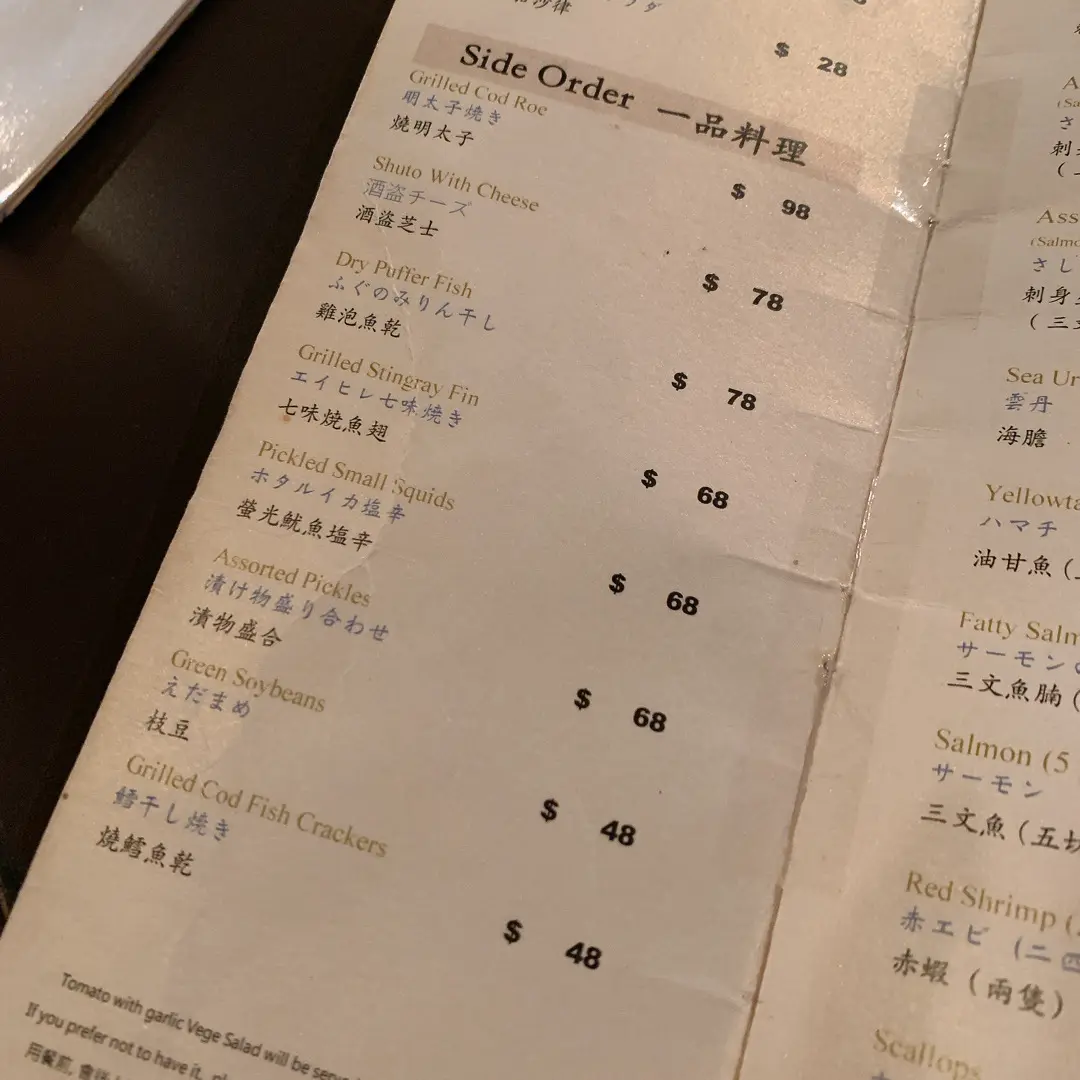 $ 28
Side Order 一品料理
Grilled Cod Roe
明太子焼き
燒明太子
$ 98
Shuto With Cheese
酒盗チーズ
酒盜芝士
$ 78
Dry Puffer Fish
ふぐのみりん干し
雞泡魚乾
$ 78
Grilled Stingray Fin
エイヒレ七味焼き
七味燒魚翅
$ 68
Pickled Small Squids
ホタルイカ塩辛
螢光魷魚塩辛
$ 68
Assorted Pickles
漬け物盛り合わせ
漬物盛合
$ 68
Green Soybeans
えだまめ
枝豆
$ 48
Grilled Cod Fish Crackers
鱈干し焼き
燒鱈魚乾
$ 48
Tomato with garlic Vege Salad will be
If you prefer not to have it,
用餐前, 會
Ass
(Salmo
さし
刺身
(三文
Sea Ur
雲丹
海膽
Yellowta
ハマチ
油甘魚 (
Fatty Salm
サーモン
三文魚腩 (
Salmon (5
サーモン
三文魚 (五切
Red Shrimp (
赤エビ (二
赤蝦 (兩隻)
Scallops